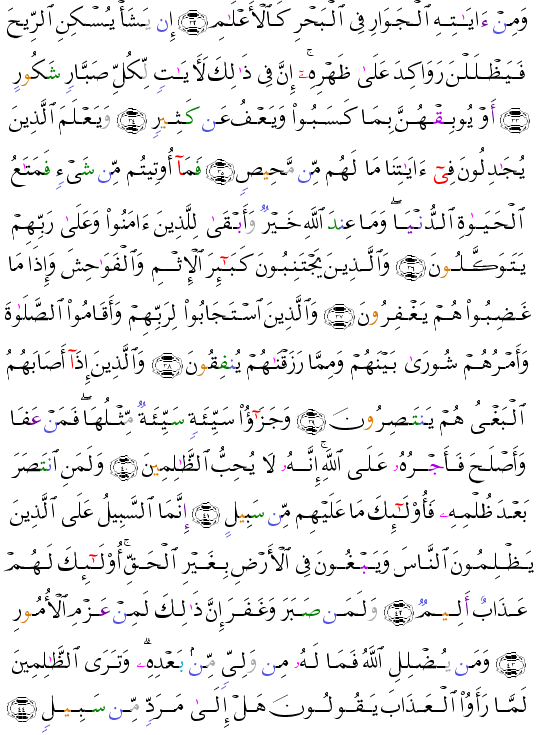 وَمِنْ ءَايَـٰتِهِ ٱلْجَوَارِ فِى ٱلْبَحْرِ كَٱلْأَعْلَـٰمِ ﴿٣٢﴾ إِن يَشَأْ يُسْكِنِ ٱلرِّيحَ
فَيَظْلَلْنَ رَوَاكِدَ عَلَىٰ ظَهْرِهِۦٓ ۚ إِنَّ فِى ذَٰلِكَ لَـَٔايَـٰتٍ لِّكُلِّ صَبَّارٍ شَكُورٍ
﴿٣٣﴾ أَوْ يُوبِقْهُنَّ بِمَا كَسَبُوا۟ وَيَعْفُ عَن كَثِيرٍ ﴿٣٤﴾ وَيَعْلَمَ ٱلَّذِينَ
يُجَـٰدِلُونَ فِىٓ ءَايَـٰتِنَا مَا لَهُم مِّن مَّحِيصٍ ﴿٣٥﴾ فَمَآ أُوتِيتُم مِّن شَىْءٍ فَمَتَـٰعُ
ٱلْحَيَوٰةِ ٱلدُّنْيَا ۖ وَمَا عِندَ ٱللَّهِ خَيْرٌ وَأَبْقَىٰ لِلَّذِينَ ءَامَنُوا۟ وَعَلَىٰ رَبِّهِمْ
يَتَوَكَّلُونَ ﴿٣٦﴾ وَٱلَّذِينَ يَجْتَنِبُونَ كَبَـٰٓئِرَ ٱلْإِثْمِ وَٱلْفَوَٰحِشَ وَإِذَا مَا
غَضِبُوا۟ هُمْ يَغْفِرُونَ ﴿٣٧﴾ وَٱلَّذِينَ ٱسْتَجَابُوا۟ لِرَبِّهِمْ وَأَقَامُوا۟ ٱلصَّلَوٰةَ
وَأَمْرُهُمْ شُورَىٰ بَيْنَهُمْ وَمِمَّا رَزَقْنَـٰهُمْ يُنفِقُونَ ﴿٣٨﴾ وَٱلَّذِينَ إِذَآ أَصَابَهُمُ
ٱلْبَغْىُ هُمْ يَنتَصِرُونَ ﴿٣٩﴾ وَجَزَٰٓؤُا۟ سَيِّئَةٍ سَيِّئَةٌ مِّثْلُهَا ۖ فَمَنْ عَفَا
وَأَصْلَحَ فَأَجْرُهُۥ عَلَى ٱللَّهِ ۚ إِنَّهُۥ لَا يُحِبُّ ٱلظَّـٰلِمِينَ ﴿٤٠﴾ وَلَمَنِ ٱنتَصَرَ
بَعْدَ ظُلْمِهِۦ فَأُو۟لَـٰٓئِكَ مَا عَلَيْهِم مِّن سَبِيلٍ ﴿٤١﴾ إِنَّمَا ٱلسَّبِيلُ عَلَى ٱلَّذِينَ
يَظْلِمُونَ ٱلنَّاسَ وَيَبْغُونَ فِى ٱلْأَرْضِ بِغَيْرِ ٱلْحَقِّ ۚ أُو۟لَـٰٓئِكَ لَهُمْ
عَذَابٌ أَلِيمٌ ﴿٤٢﴾ وَلَمَن صَبَرَ وَغَفَرَ إِنَّ ذَٰلِكَ لَمِنْ عَزْمِ ٱلْأُمُورِ
﴿٤٣﴾ وَمَن يُضْلِلِ ٱللَّهُ فَمَا لَهُۥ مِن وَلِىٍّ مِّنۢ بَعْدِهِۦ ۗ وَتَرَى ٱلظَّـٰلِمِينَ
لَمَّا رَأَوُا۟ ٱلْعَذَابَ يَقُولُونَ هَلْ إِلَىٰ مَرَدٍّ مِّن سَبِيلٍ ﴿٤٤﴾